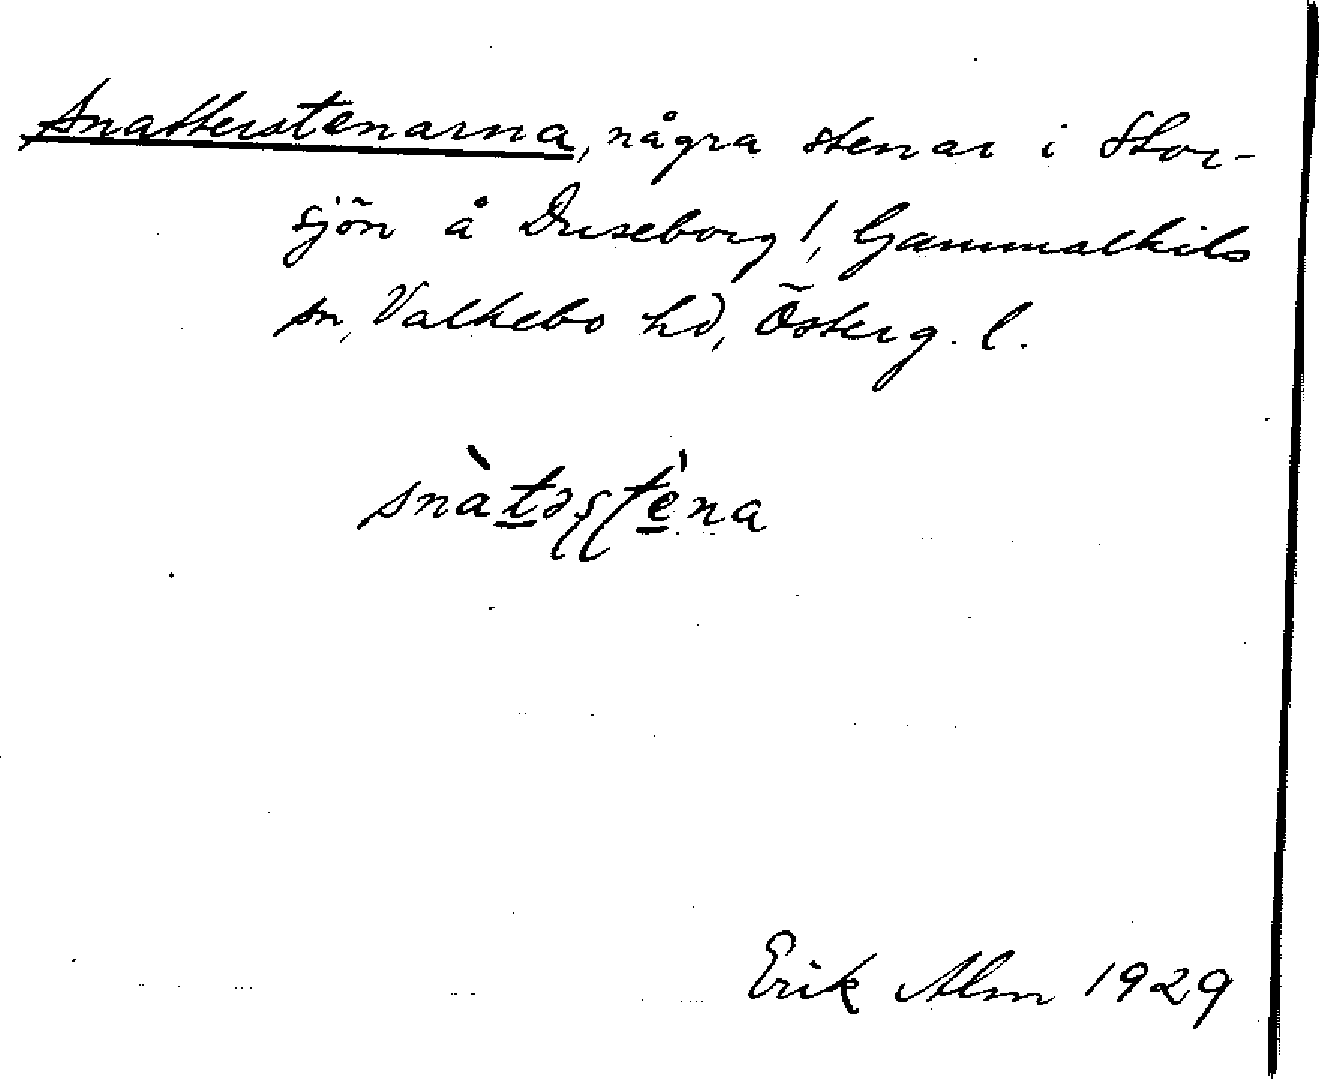 Snatterstenarna, några stenar i Stor-
sjön å Duseborg!, Gammalkils
sn, Valkebo hd, Österg. l.
snàtəʂʈèna
Erik Alm 1929